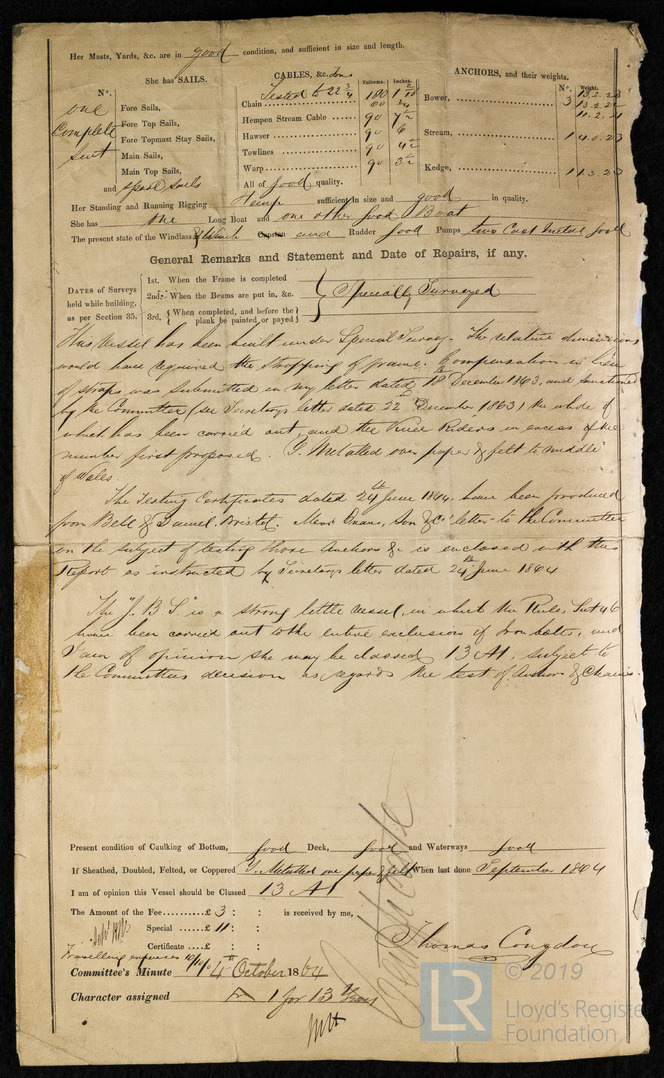 Her Masts, Yards, &c. are in good condition, and sufficient in size and length.
She has SAILS.
CABLES, &c.
Fathoms.
Inches.
ANCHORS, and their weights.
Nº.
Weight.
Nº.
one
Complete
Suit
and spare sails
Fore Sails,
Fore Top Sails,
Fore Topmast Stay Sails,
Main Sails,
Main Top Sails,
Tested to 22 3/4
Chain 180 1
Hempen Stream Cable 90 7½
Hawser 90 6
Towlines 90 4½
Warp 90 3½
All of good quality.
Bower, 3
Stream, 1
Kedge, 1
Her Standing and Running Rigging Hemp sufficient in size and good in quality.
She has one Long Boat and one other good Boat
The present state of the Windlass & Winch Capstan and Rudder good Pumps two Cast Metal good
General Remarks and Statement and Date of Repairs, if any.
DATES of Surveys
held while building,
as per Section 35.
1st. When the Frame is completed
2nd. When the Beams are put in, &c.
3rd, { When completed, and before the
plank be painted or payed }
Specially Surveyed
This vessel has been built under Special Survey. The relative dimensions
would have required the Strapping of frame. Compensation in lieu
of straps was submitted in my letter dated 18th December 1863, and sanctioned
by the Committee (see Secretarys letter dated 22nd December 1863) the whole of
which has been carried out and the Knee Riders in excess of the
number first proposed. Y. Metalled over paper & felt to middle
of Wales.
The Testing Certificates dated 24th June 1864, have been produced
from Bell & Daniel Bristol. Messrs Evans, Son & Co letter to the Committee
on the subject of testing those Anchors &c is enclosed with this
Report as instructed by Secretarys letter dated 24th June 1864
The "J. B. S." is a strong little vessel, in which the Rules, Sect 46
have been carried out to the entire exclusion of Iron bolts, and
I am of opinion she may be classed 13 A1, subject to
the Committees decision as regards the test of Anchors & Chains.
Present condition of Caulking of Bottom, good Deck, good and Waterways good
If Sheathed, Doubled, Felted, or Coppered Y. Metalled over paper & felt When last done September 1864
I am of opinion this Vessel should be Classed 13 A1
The Amount of the Fee...........£ 3 : : is received by me,
Special ......£ 11 : :
Certificate ...£ : :
Thomas Congdon
Travelling expenses
Committee's Minute 4th October 1864
Character assigned A 1 for 13 Years
© 2019
LR
Lloyd's Register
Foundation